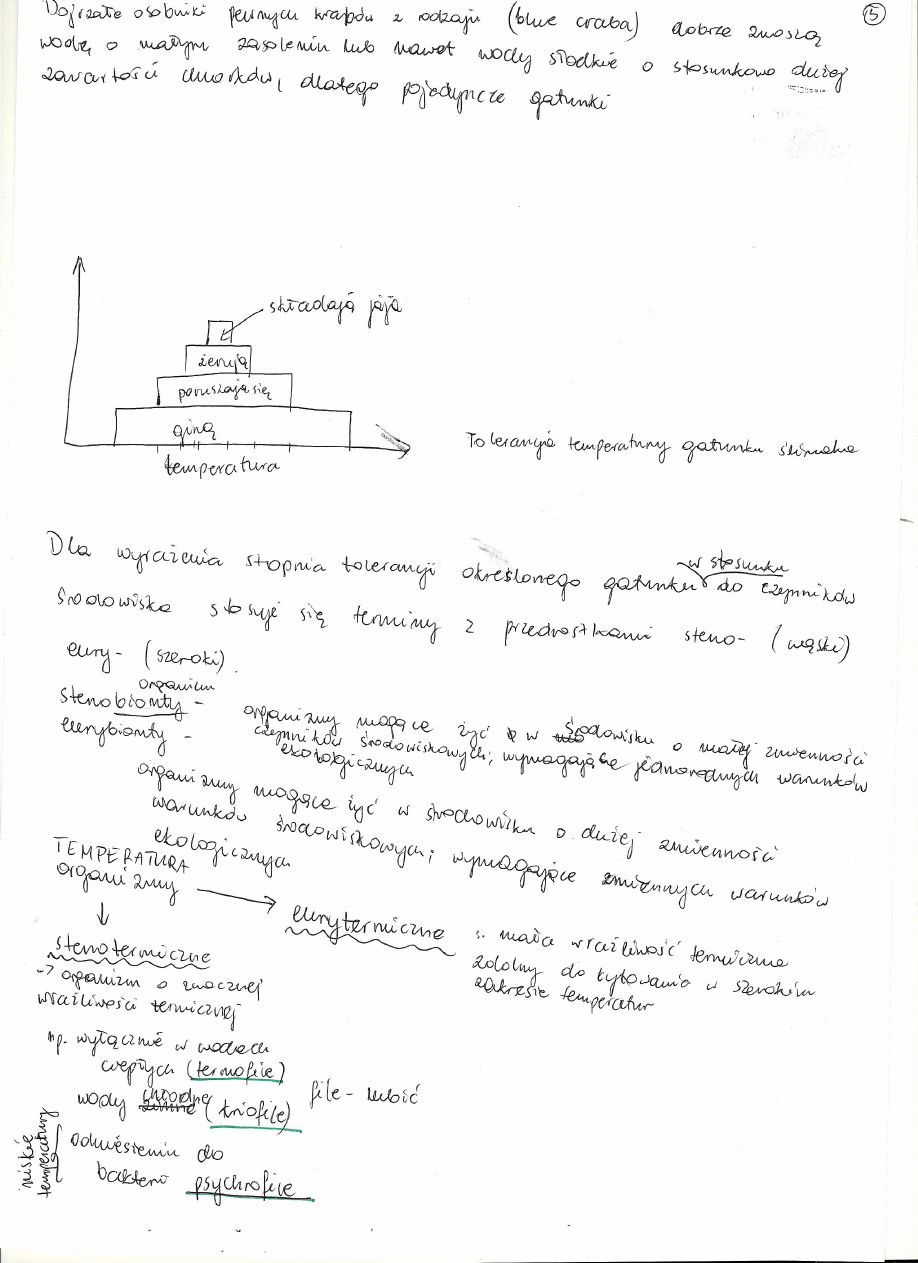 15
Dojrzałe osobniki pewnych krabów z rodzaju (blue craba) dobrze znoszą
wodę o małym zasoleniu lub nawet wody słodkie o stosunkowo dużej
zawartości chlorków, dlatego pojedyncze gatunki
składają jaja
żerują
poruszają się
giną
temperatura
Tolerancja temperatury gatunku ślimaka
Dla wyrażenia stopnia tolerancji określonego gatunku w stosunku do czynników
środowiska stosuje się terminy z przedrostkami steno- (wąski)
eury- (szeroki).
organizm
stenobionty - organizmy mogące żyć w środowisku o małej zmienności
czynników środowiskowych; wymagające jednorodnych warunków
ekologicznych
eurybionty -
organizmy mogące żyć w środowisku o dużej zmienności
warunków środowiskowych; wymagające zmiennych warunków
ekologicznych
TEMPERATURA
organizmy
eurytermiczne
: mała wrażliwość termiczna
zdolny do bytowania w szerokim
zakresie temperatur
stenotermiczne
-> organizm o znacznej
wrażliwości termicznej
np. wyłącznie w wodach
ciepłych (termofile)
wody chłodne (kriofile)
file - lubić
niskie temperatury
odniesieniu do
bakterii psychrofile